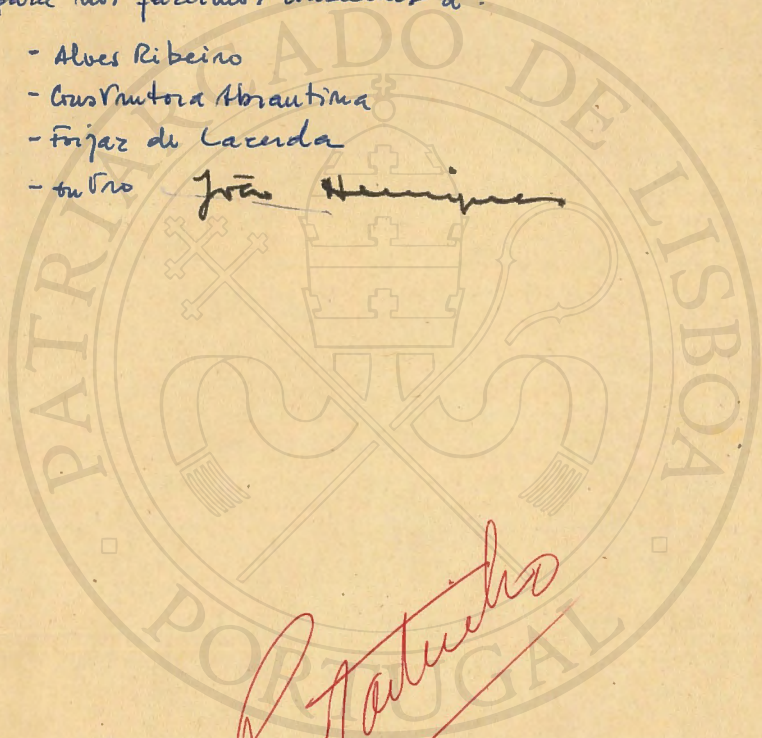 para nos fazermos a :
- Alves Ribeiro
- Construtora Abrantina
- Forjaz de Lacerda
- outro João Henriques
PATRIARCADO DE LISBOA
PORTUGAL